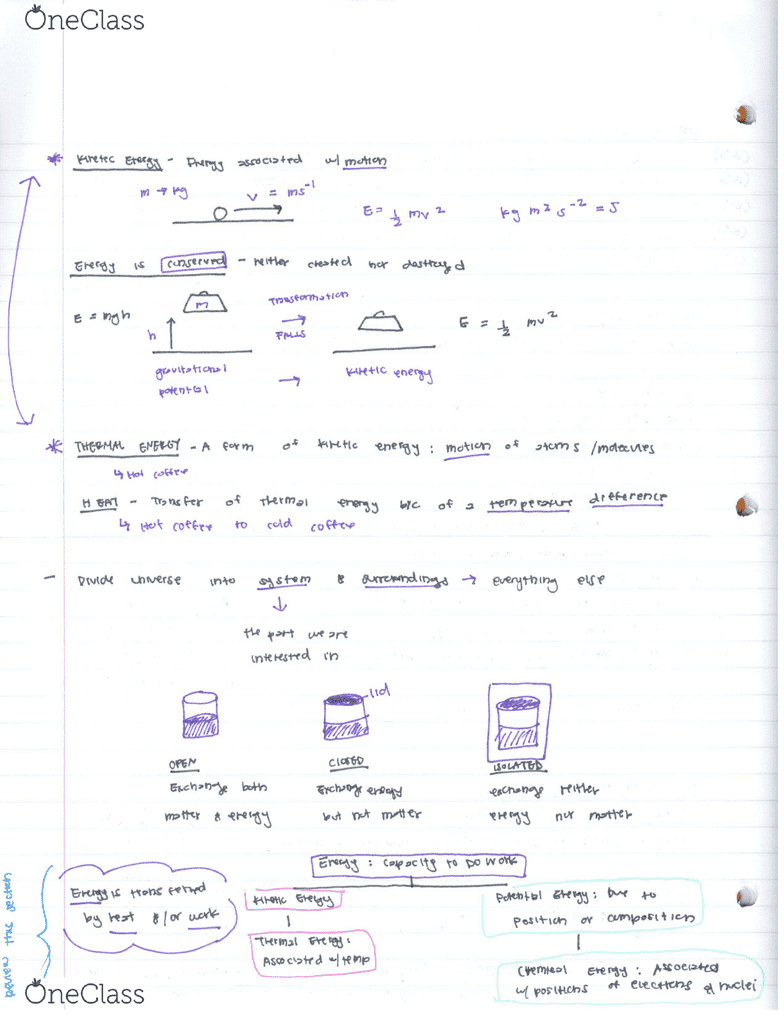 OneClass
* Kinetic Energy - Energy associated w/ motion
m → kg
v = ms⁻¹
E = 1/2 mv²
kg m² s⁻² = J
Energy is conserved - neither created nor destroyed
E = mgh
m
h
Transformation
→
FALLS
E = 1/2 mv²
gravitational potential → kinetic energy
* THERMAL ENERGY - A form of kinetic energy : motion of atoms / molecules
↳ Hot coffee
HEAT - Transfer of thermal energy b/c of a temperature difference
↳ Hot coffee to cold coffee
- Divide universe into system & surroundings → everything else
↓
the part we are
interested in
lid
OPEN
Exchange both
matter & energy
CLOSED
Exchange energy
but not matter
ISOLATED
exchange neither
energy nor matter
Energy : capacity to DO WORK
Energy is transferred
by heat &/or work
Kinetic Energy
Thermal Energy :
Associated w/ temp
Potential Energy : Due to
position or composition
Chemical Energy : Associated
w/ positions of electrons & nuclei
OneClass